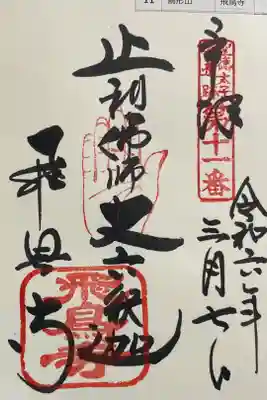 11 鳥形山 飛鳥寺
奉拝
聖徳太子
第十一番
令和六年
三月七日
止利佛師 丈六釈迦
飛鳥寺
飛鳥寺